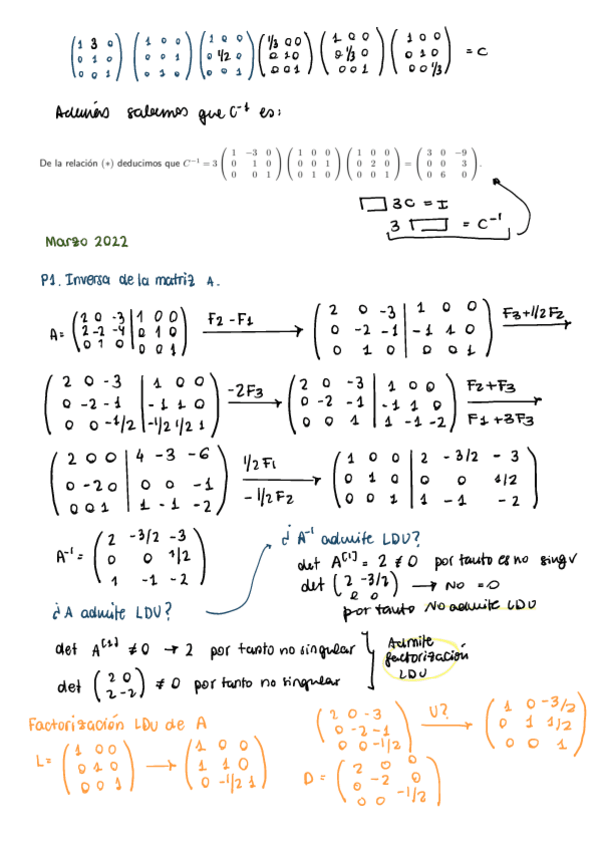 (1 3 0 / 0 1 0 / 0 0 1) (1 0 0 / 0 0 1 / 0 1 0) (1 0 0 / 0 1/2 0 / 0 0 1) (1/3 0 0 / 0 1 0 / 0 0 1) (1 0 0 / 0 1/3 0 / 0 0 1) (1 0 0 / 0 1 0 / 0 0 1/3) = C
Además sabemos que C⁻¹ es:
De la relación (*) deducimos que C⁻¹ = 3 (1 −3 0 / 0 1 0 / 0 0 1) (1 0 0 / 0 0 1 / 0 1 0) (1 0 0 / 0 2 0 / 0 0 1) = (3 0 −9 / 0 0 3 / 0 6 0).
▭ 3C = I
3 ▭ = C⁻¹
Marzo 2022
P1. Inversa de la matriz A.
A = (2 0 -3 | 1 0 0 / 2 -2 -4 | 0 1 0 / 0 1 0 | 0 0 1) F2 - F1 → (2 0 -3 | 1 0 0 / 0 -2 -1 | -1 1 0 / 0 1 0 | 0 0 1) F3+1/2F2 →
(2 0 -3 | 1 0 0 / 0 -2 -1 | -1 1 0 / 0 0 -1/2 | -1/2 1/2 1) -2F3 → (2 0 -3 | 1 0 0 / 0 -2 -1 | -1 1 0 / 0 0 1 | 1 -1 -2) F2+F3 F1+3F3 →
(2 0 0 | 4 -3 -6 / 0 -2 0 | 0 0 -1 / 0 0 1 | 1 -1 -2) 1/2 F1 -1/2F2 → (1 0 0 | 2 -3/2 -3 / 0 1 0 | 0 0 1/2 / 0 0 1 | 1 -1 -2)
A⁻¹ = (2 -3/2 -3 / 0 0 1/2 / 1 -1 -2)
¿A⁻¹ admite LDU?
det A[1] = 2 ≠ 0 por tanto es no singv
det (2 -3/2 / 0 0) → No = 0
por tanto No admite LDU
¿A admite LDU?
det A[1] ≠ 0 → 2 por tanto no singular
det (2 0 / 2 -2) ≠ 0 por tanto no singular
Admite
factorización
LDU
Factorización LDU de A
L = (1 0 0 / 0 1 0 / 0 0 1) → (1 0 0 / 1 1 0 / 0 -1/2 1)
(2 0 -3 / 0 -2 -1 / 0 0 -1/2) U? → (1 0 -3/2 / 0 1 1/2 / 0 0 1)
D = (2 0 0 / 0 -2 0 / 0 0 -1/2)